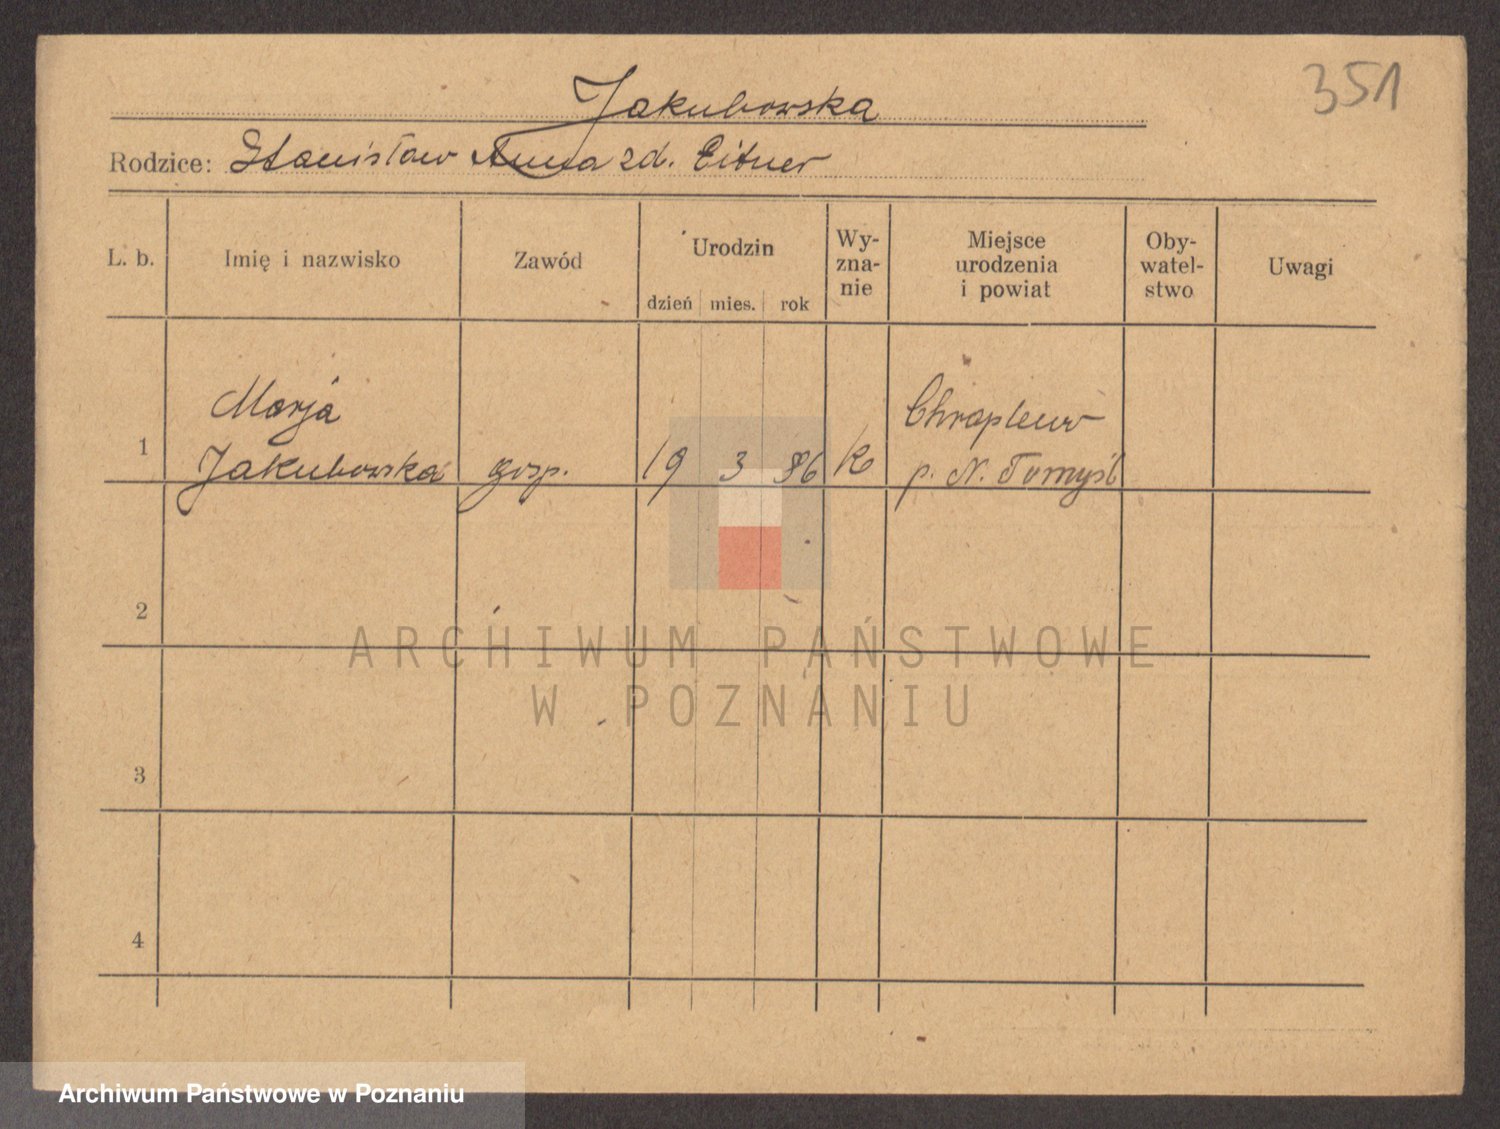 351
Jakubowska
Rodzice: Stanisław Anna zd. Eitner
L. b.
Imię i nazwisko
Zawód
Urodzin
dzień mies. rok
Wy-
zna-
nie
Miejsce
urodzenia
i powiat
Oby-
watel-
stwo
Uwagi
1
Marja
Jakubowska
gosp.
19 3 86
K
Chraplewo
p. N. Tomyśl
2
3
4
ARCHIWUM PAŃSTWOWE
W POZNANIU
Archiwum Państwowe w Poznaniu